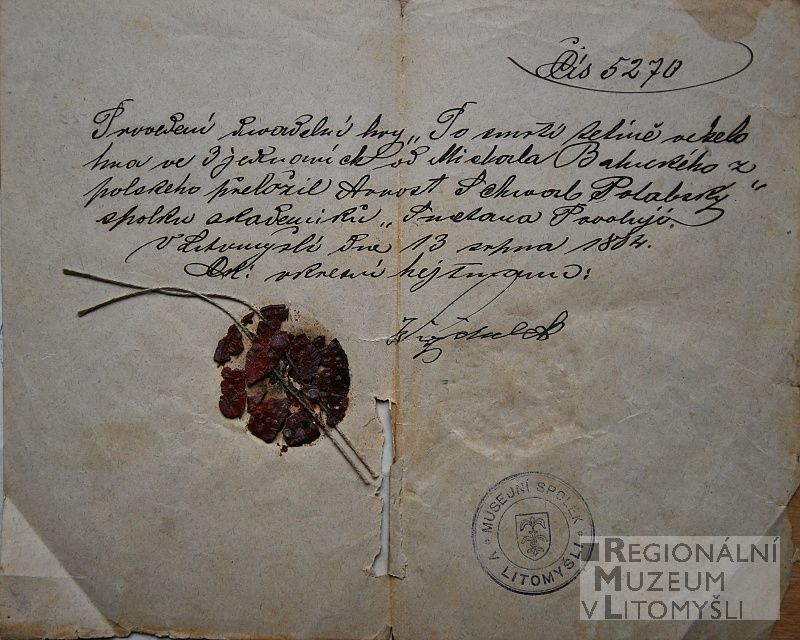 Čís 5270
Provedení divadelní hry „Po smrti tetině veselo
hra ve 3 jednáních od Michala Baluckého z
polského přeložil Arnošt Schwab Polabský"
spolku akademiků „
V Litomyšli dne 13 srpna 1884.
C. k. okresní hejtman:
MUSEJNÍ SPOLEK
V LITOMYŠLI
REGIONÁLNÍ
MUZEUM
V LITOMYŠLI